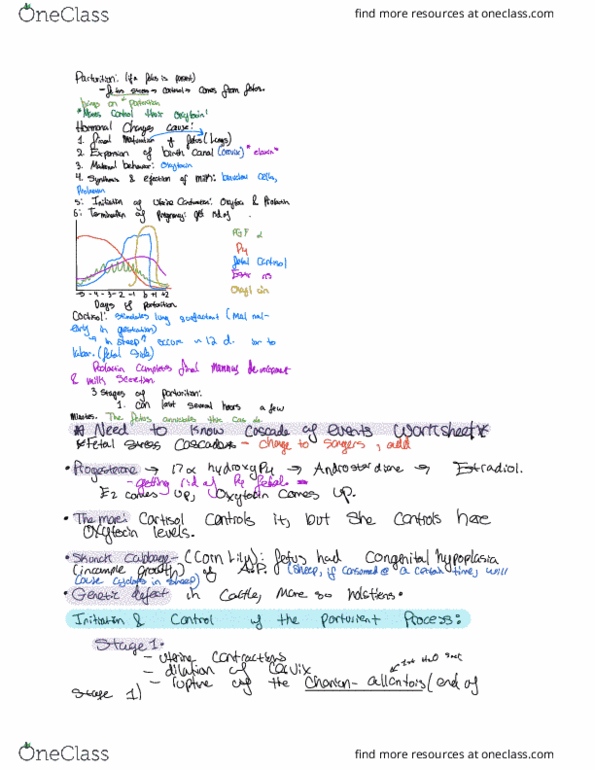 OneClass
find more resources at oneclass.com
Parturition: (if a fetus is present)
- fetus stress → cortisol → comes from fetus.
brings on parturition
*Moms control their oxytocin!
Hormonal Changes cause:
1. final Maturation of fetus (Lungs)
2. Expansion of birth canal (cervix) *elastin*
3. Maternal behavior: oxytocin
4. Synthesis & ejection of milk:
Prolactin
5: Initiation of Uterine Contraction: Oxytocin & Prolactin
6: Termination of pregnancy: get rid of
PGF 2
P4
fetal Cortisol
Oxyt cin
-5 -4 -3 -2 -1 0 +1 +2
Days of parturition
Cortisol: lung surfactant
early in gestration)
in sheep occurs ~ 12 d.
labor. (fetal side)
Prolactin completes final Mammary development
& milk Secretion
3 stages of parturition:
1. can last several hours a few
minutes. The fetus
* Need to know Cascade of events Worksheet*
*Fetal stress Cascade - change to sangers, add
• Progesterone → 17α hydroxyP4 → Androstendione → Estradiol.
- getting rid of P4 fetal
E2 comes up, Oxytocin comes up.
• The mare: Cortisol controls it, but she controls here
oxytocin levels.
• Skunck cabbage - (Corn Lily): fetus had Congenital hypoplasia
(incomple growth) of (sheep, if consumed @ a certain time, will
cause cyclops in sheep)
• Genetic defect in Cattle, more so holstiens.
Initiation & Control of the parturient Process:
Stage 1:
- uterine contractions
- dilation of Cervix
- rupture of the Chorion-allantois (end of
Stage 1)
OneClass
find more resources at oneclass.com